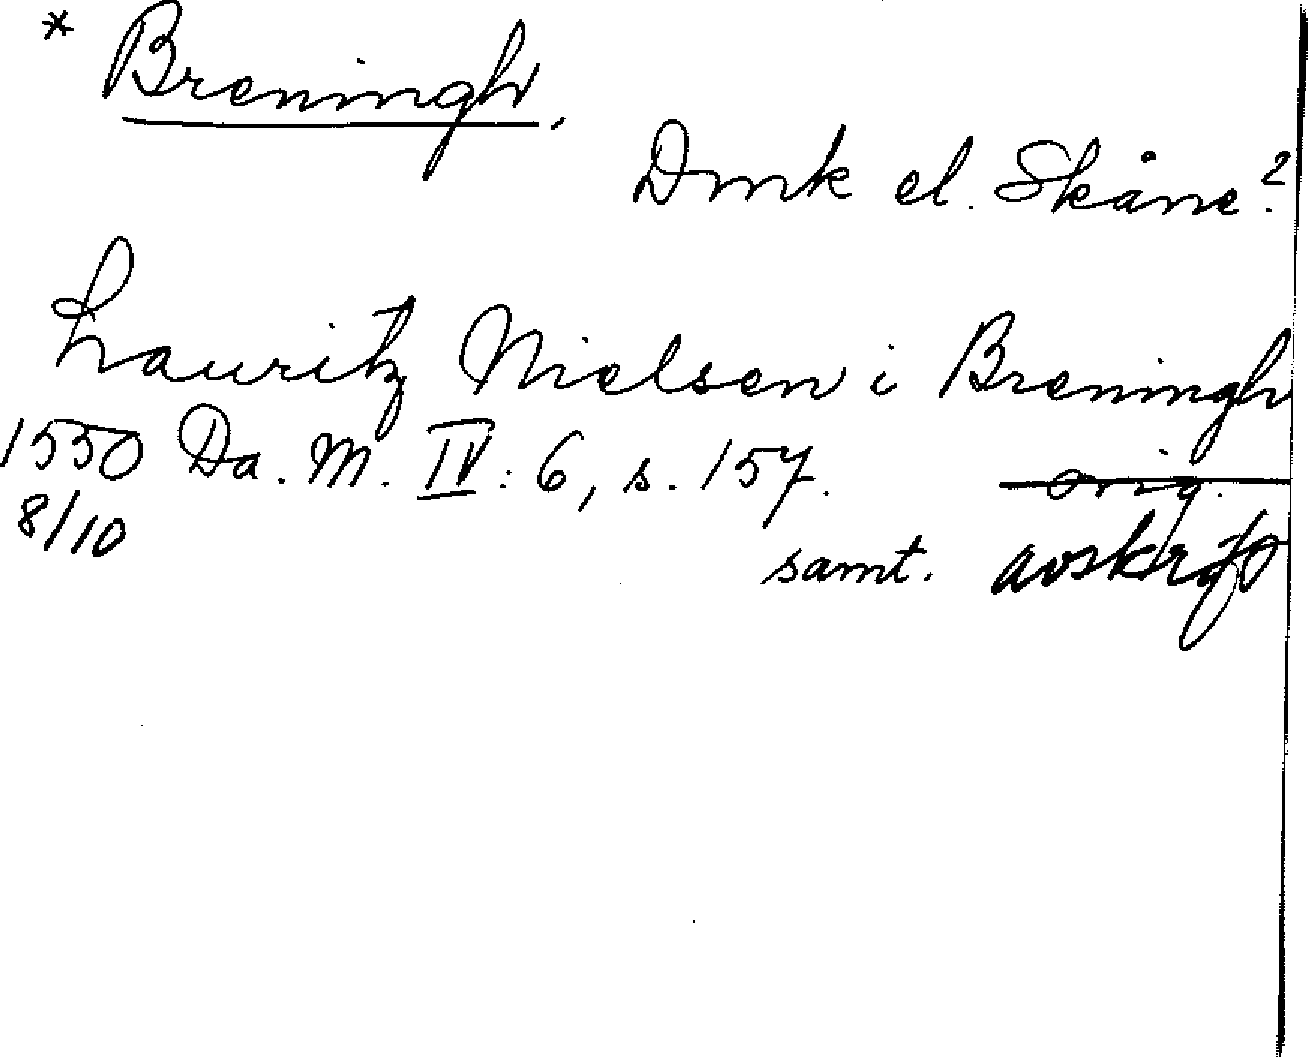 * Breningh.
Dmk el. Skåne?
Lauritz Nielsen i Breningh
1550 Da. M. IV: 6, s. 157. orig.
8/10
samt. avskrift